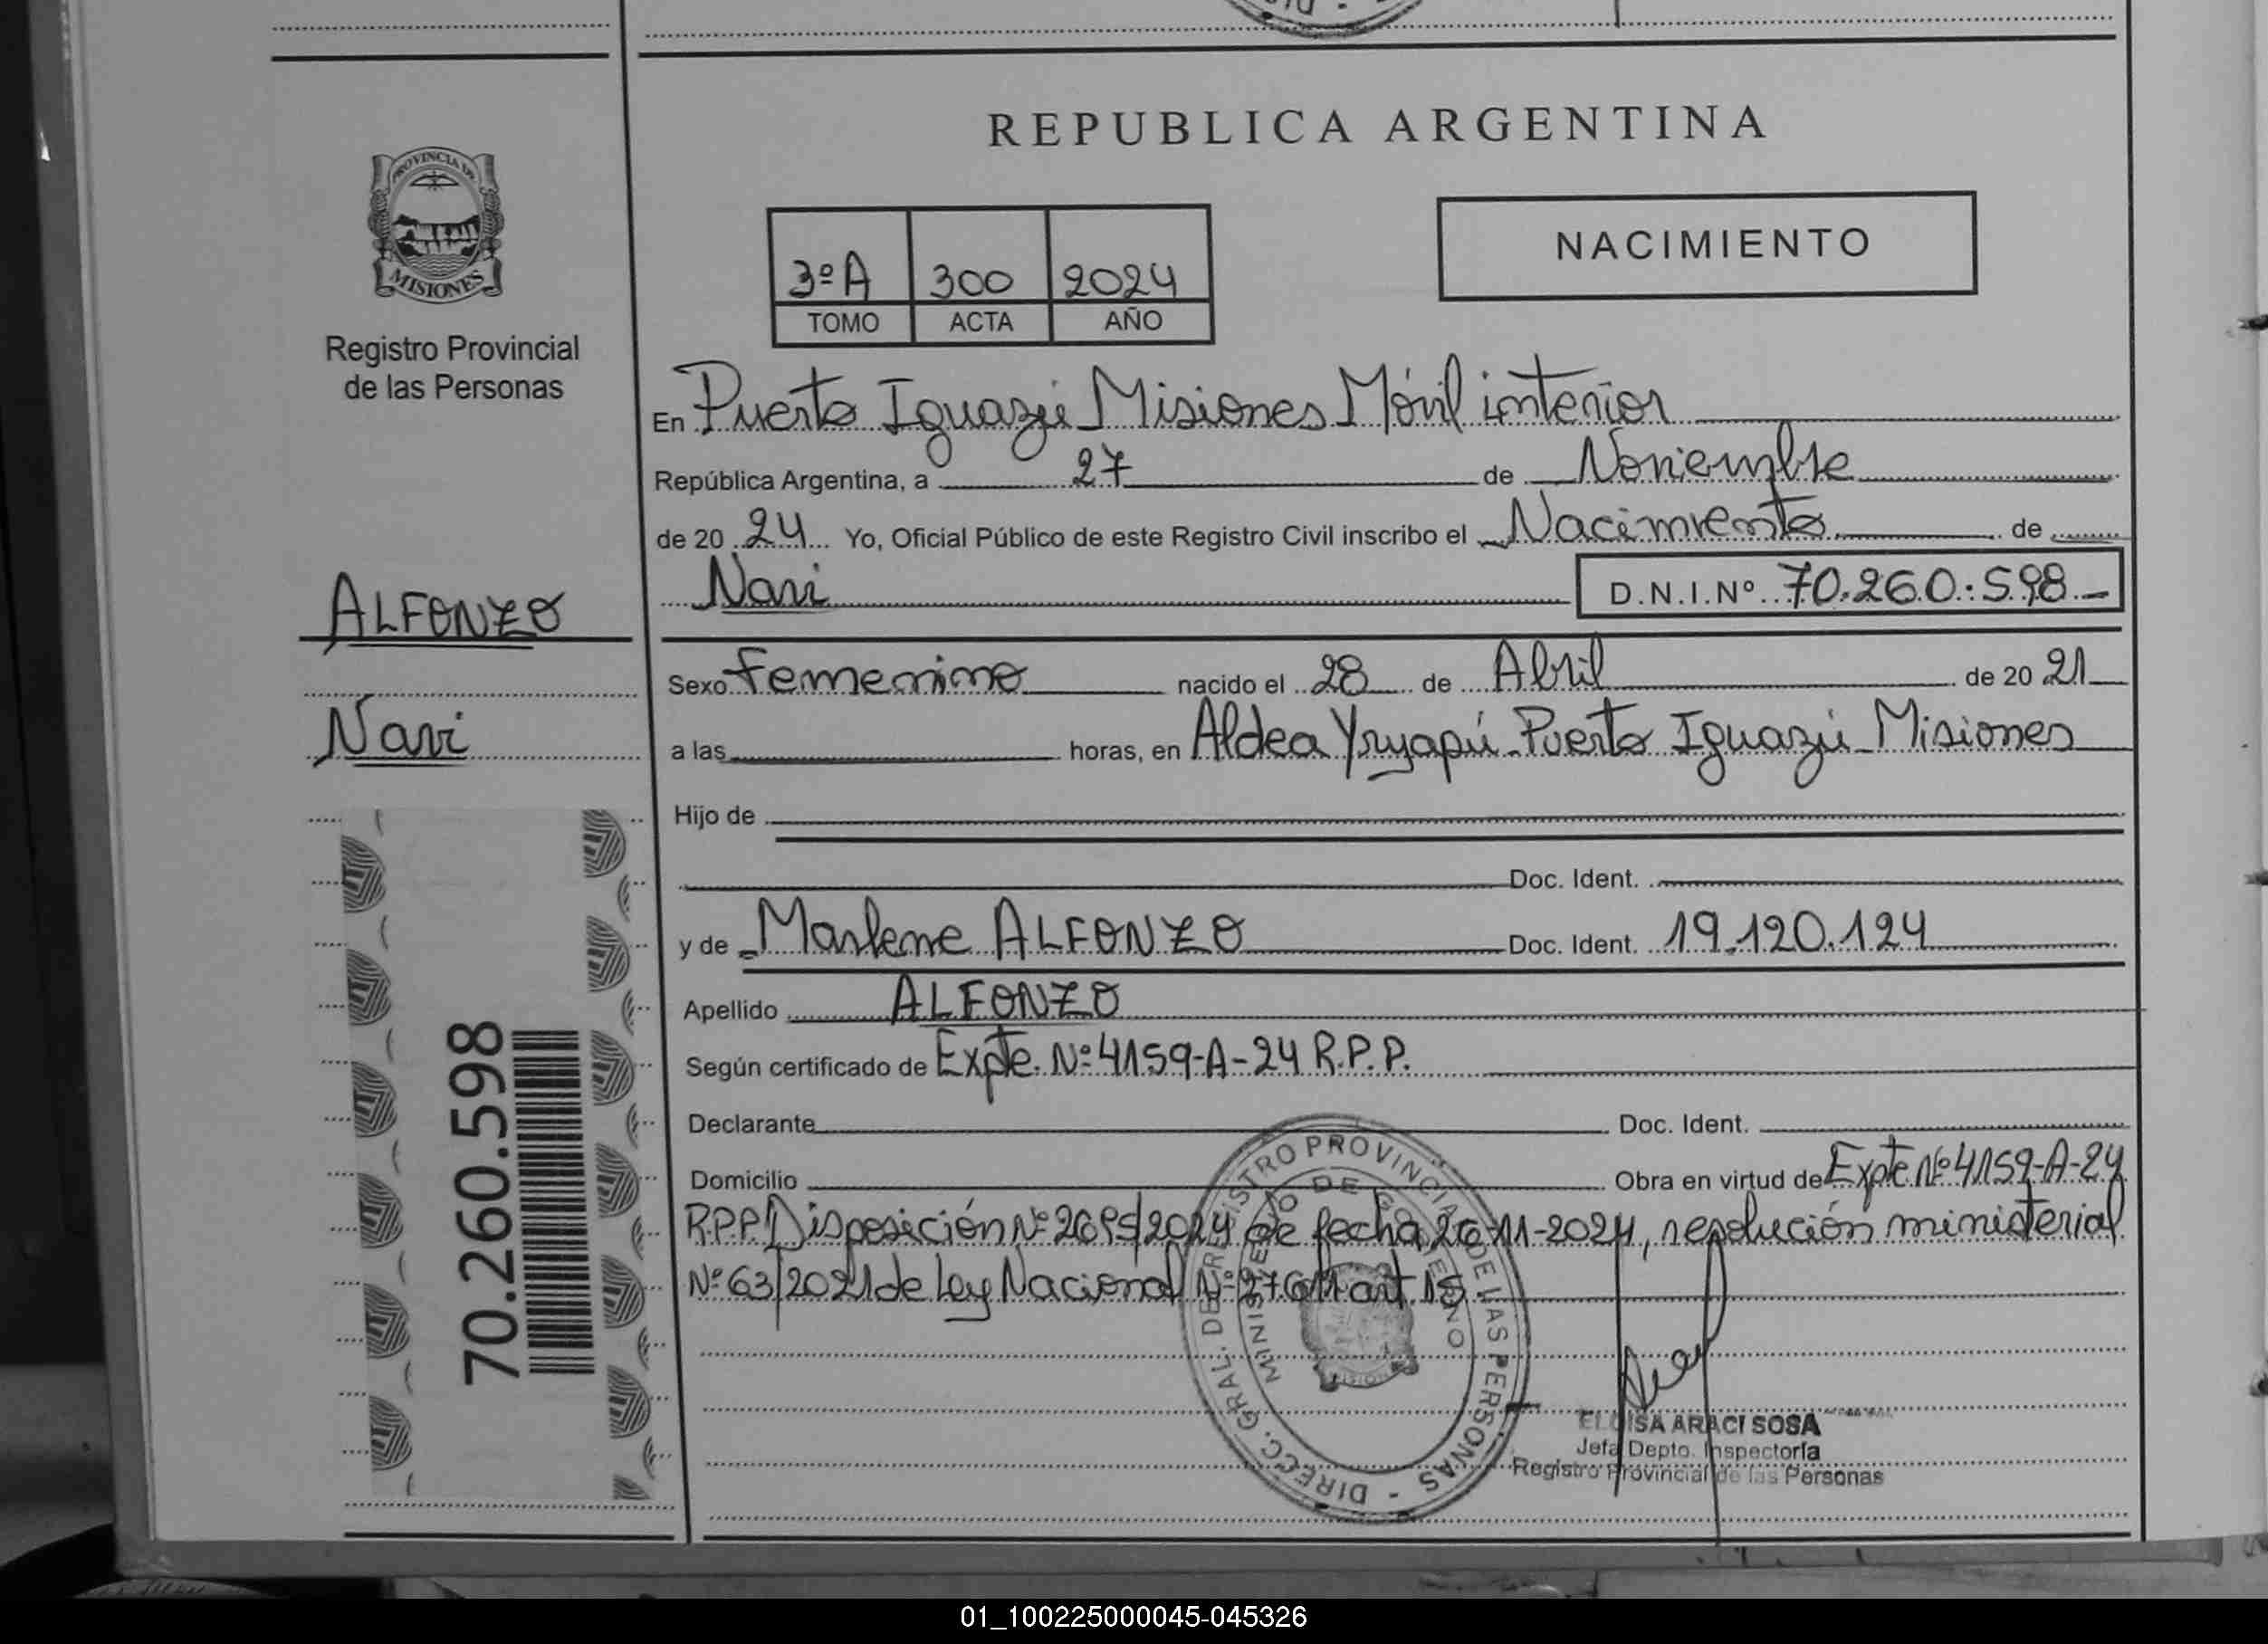 REPUBLICA ARGENTINA
PROVINCIA DE
MISIONES
Registro Provincial
de las Personas
3º A 300 2024
TOMO ACTA AÑO
NACIMIENTO
En Puerto Iguazú Misiones Móvil interior
República Argentina, a 27 de Noviembre
de 20 24 Yo, Oficial Público de este Registro Civil inscribo el Nacimiento de
Navi D.N.I.Nº 70.260.598
ALFONZO
Navi
Sexo Femenino nacido el 28 de Abril de 20 21
a las horas, en Aldea Yryapú Puerto Iguazú Misiones
Hijo de
Doc. Ident.
y de Marlene ALFONZO Doc. Ident. 19.120.124
Apellido ALFONZO
Según certificado de Expte. Nº 4159-A-24 R.P.P.
Declarante Doc. Ident.
Domicilio Obra en virtud de Expte Nº 4159-A-24
R.P.P. Disposición Nº /2024 de fecha 26-11-2024, resolución ministerial
Nº 63/2021 de Ley Nacional Nº 27611 art. 15
70.260.598
DIRECC. GRAL. DE REGISTRO PROVINCIAL DE LAS PERSONAS -
MINISTERIO DE GOBIERNO
ELOISA ARACI SOSA
Jefa Depto. Inspectoría
Registro Provincial de las Personas
01_100225000045-045326